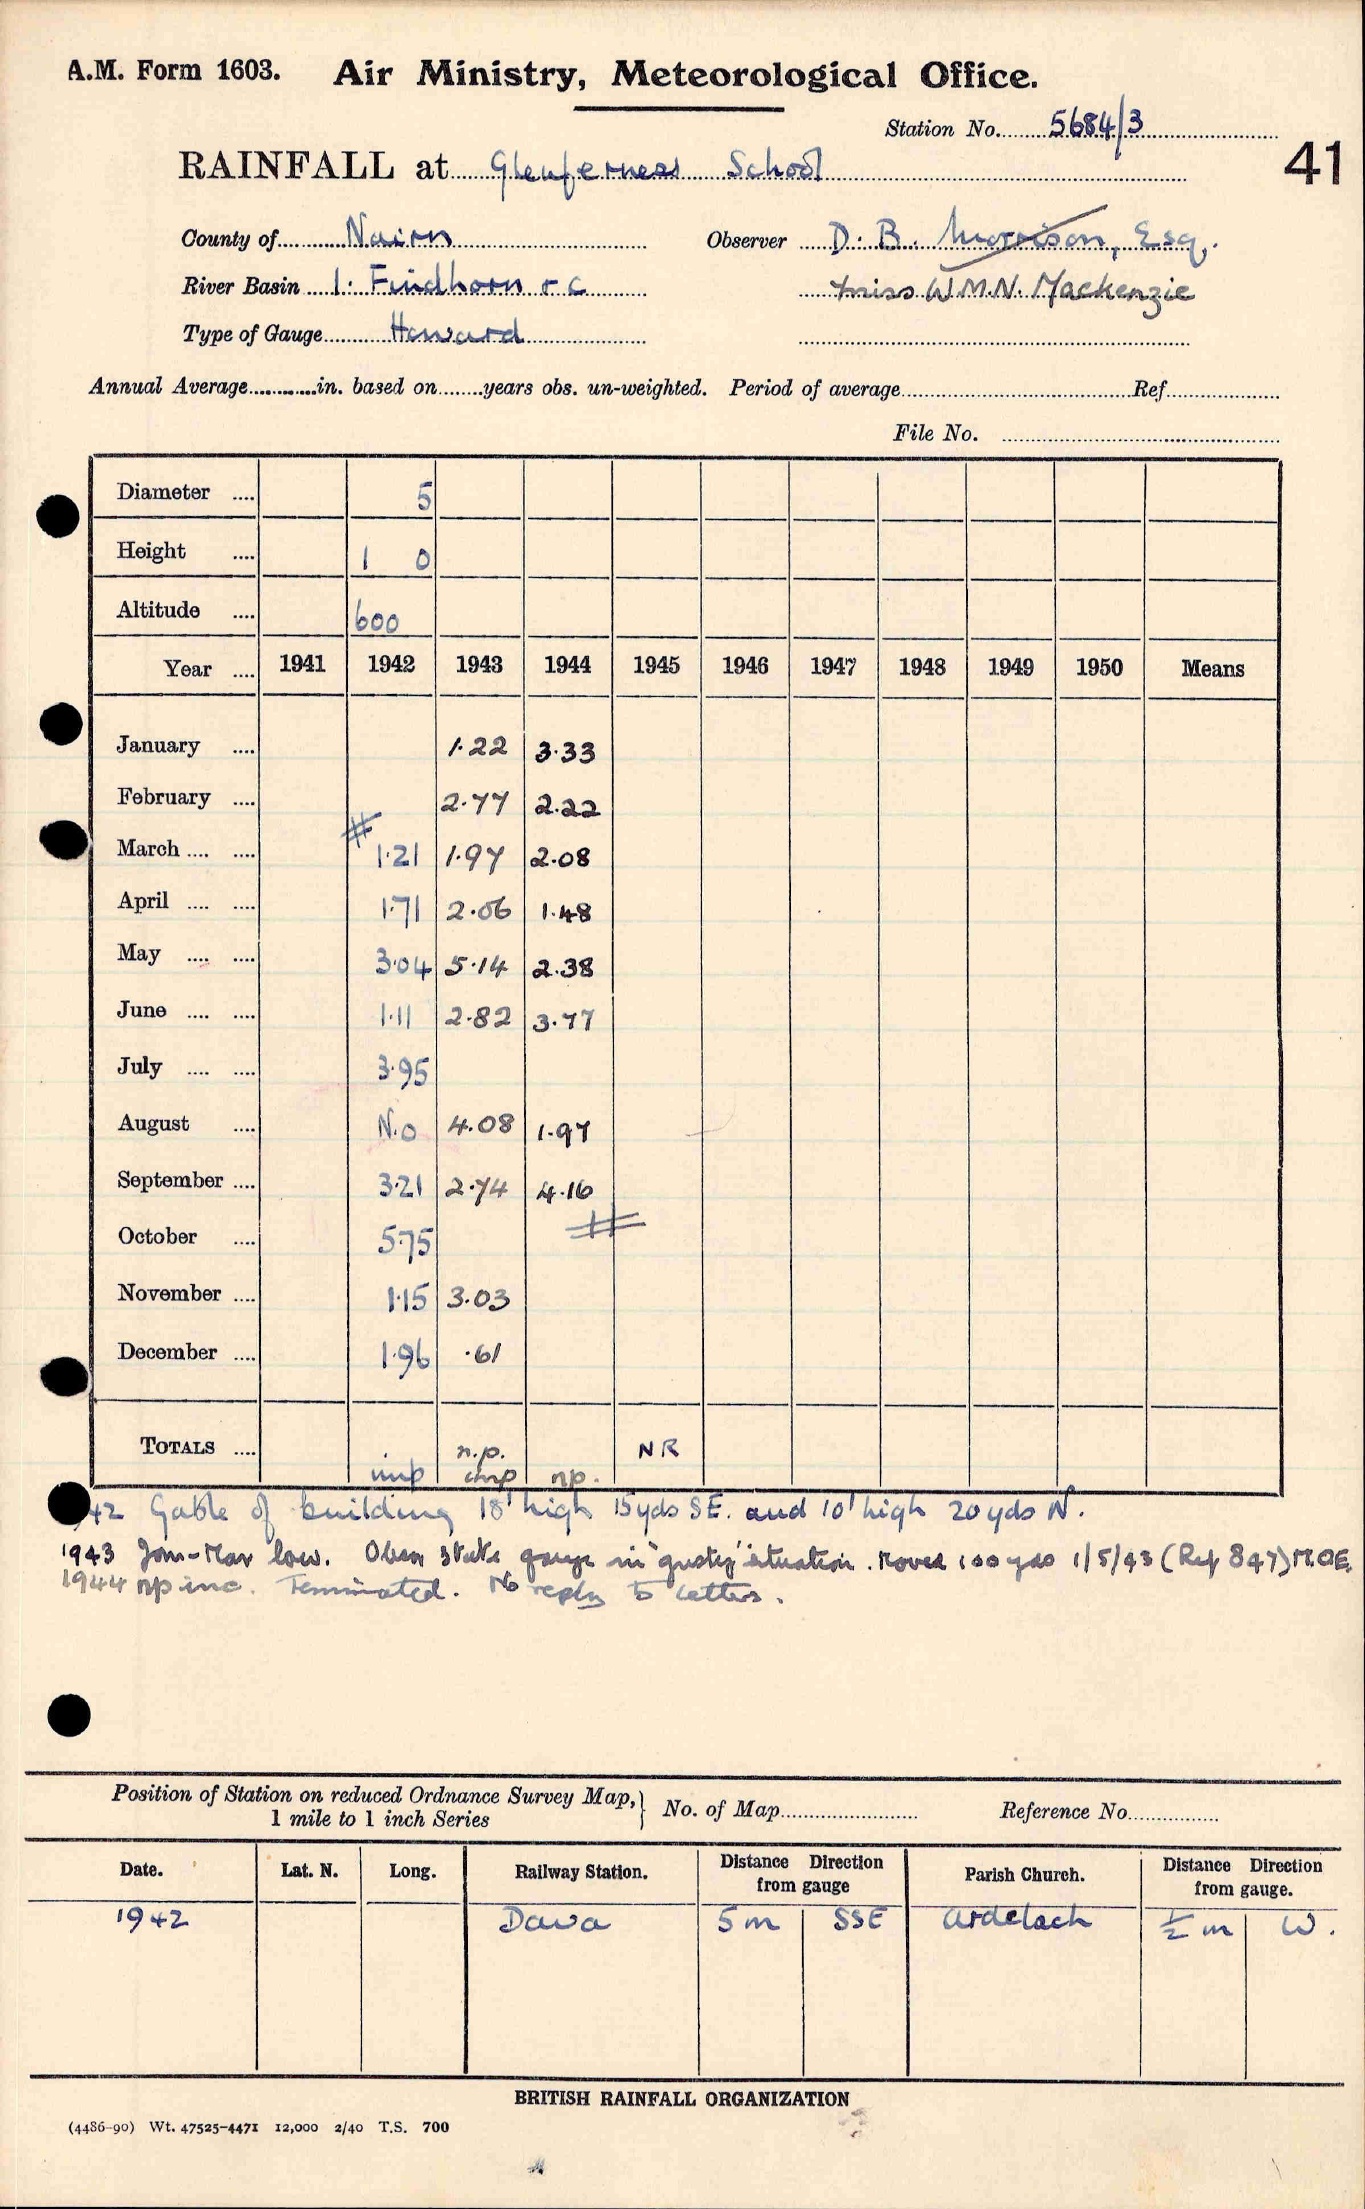 A.M. Form 1603. Air Ministry, Meteorological Office.
Station No. 5684/3
41
RAINFALL at Glenferness School
County of Nairn Observer D. B. Morrison, Esq.
River Basin 1. Findhorn & C Miss W.M.N. Mackenzie
Type of Gauge Howard
Annual Average............in. based on........years obs. un-weighted. Period of average Ref.
File No.
Diameter .... 5
Height .... 1 0
Altitude .... 600
Year .... 1941 1942 1943 1944 1945 1946 1947 1948 1949 1950 Means
January .... 1.22 3.33
February .... 2.77 2.22
March .... .... 1.21 1.97 2.08
April .... .... 1.71 2.06 1.48
May .... .... 3.04 5.14 2.38
June .... .... 1.11 2.82 3.77
July .... .... 3.95
August .... N.O 4.08 1.97
September .... 3.21 2.74 4.16
October .... 5.75
November .... 1.15 3.03
December .... 1.96 .61
TOTALS .... imp n.p. imp np. NR
42 Gable of building 18' high 15yds SE. and 10' high 20yds N.
1943 Jan-Mar low. Obser states gauge in "gusty" situation. Moved 100 yds 1/5/43 (Ref 847) M.O.E.
1944 np inc. Terminated. No reply to letters.
Position of Station on reduced Ordnance Survey Map,} No. of Map Reference No.
1 mile to 1 inch Series
Date. Lat. N. Long. Railway Station. Distance Direction from gauge Parish Church. Distance Direction from gauge.
1942 Dava 5 m SSE Ardclach ½ m W.
BRITISH RAINFALL ORGANIZATION
(4486-90) Wt. 47525-4471 12,000 2/40 T.S. 700